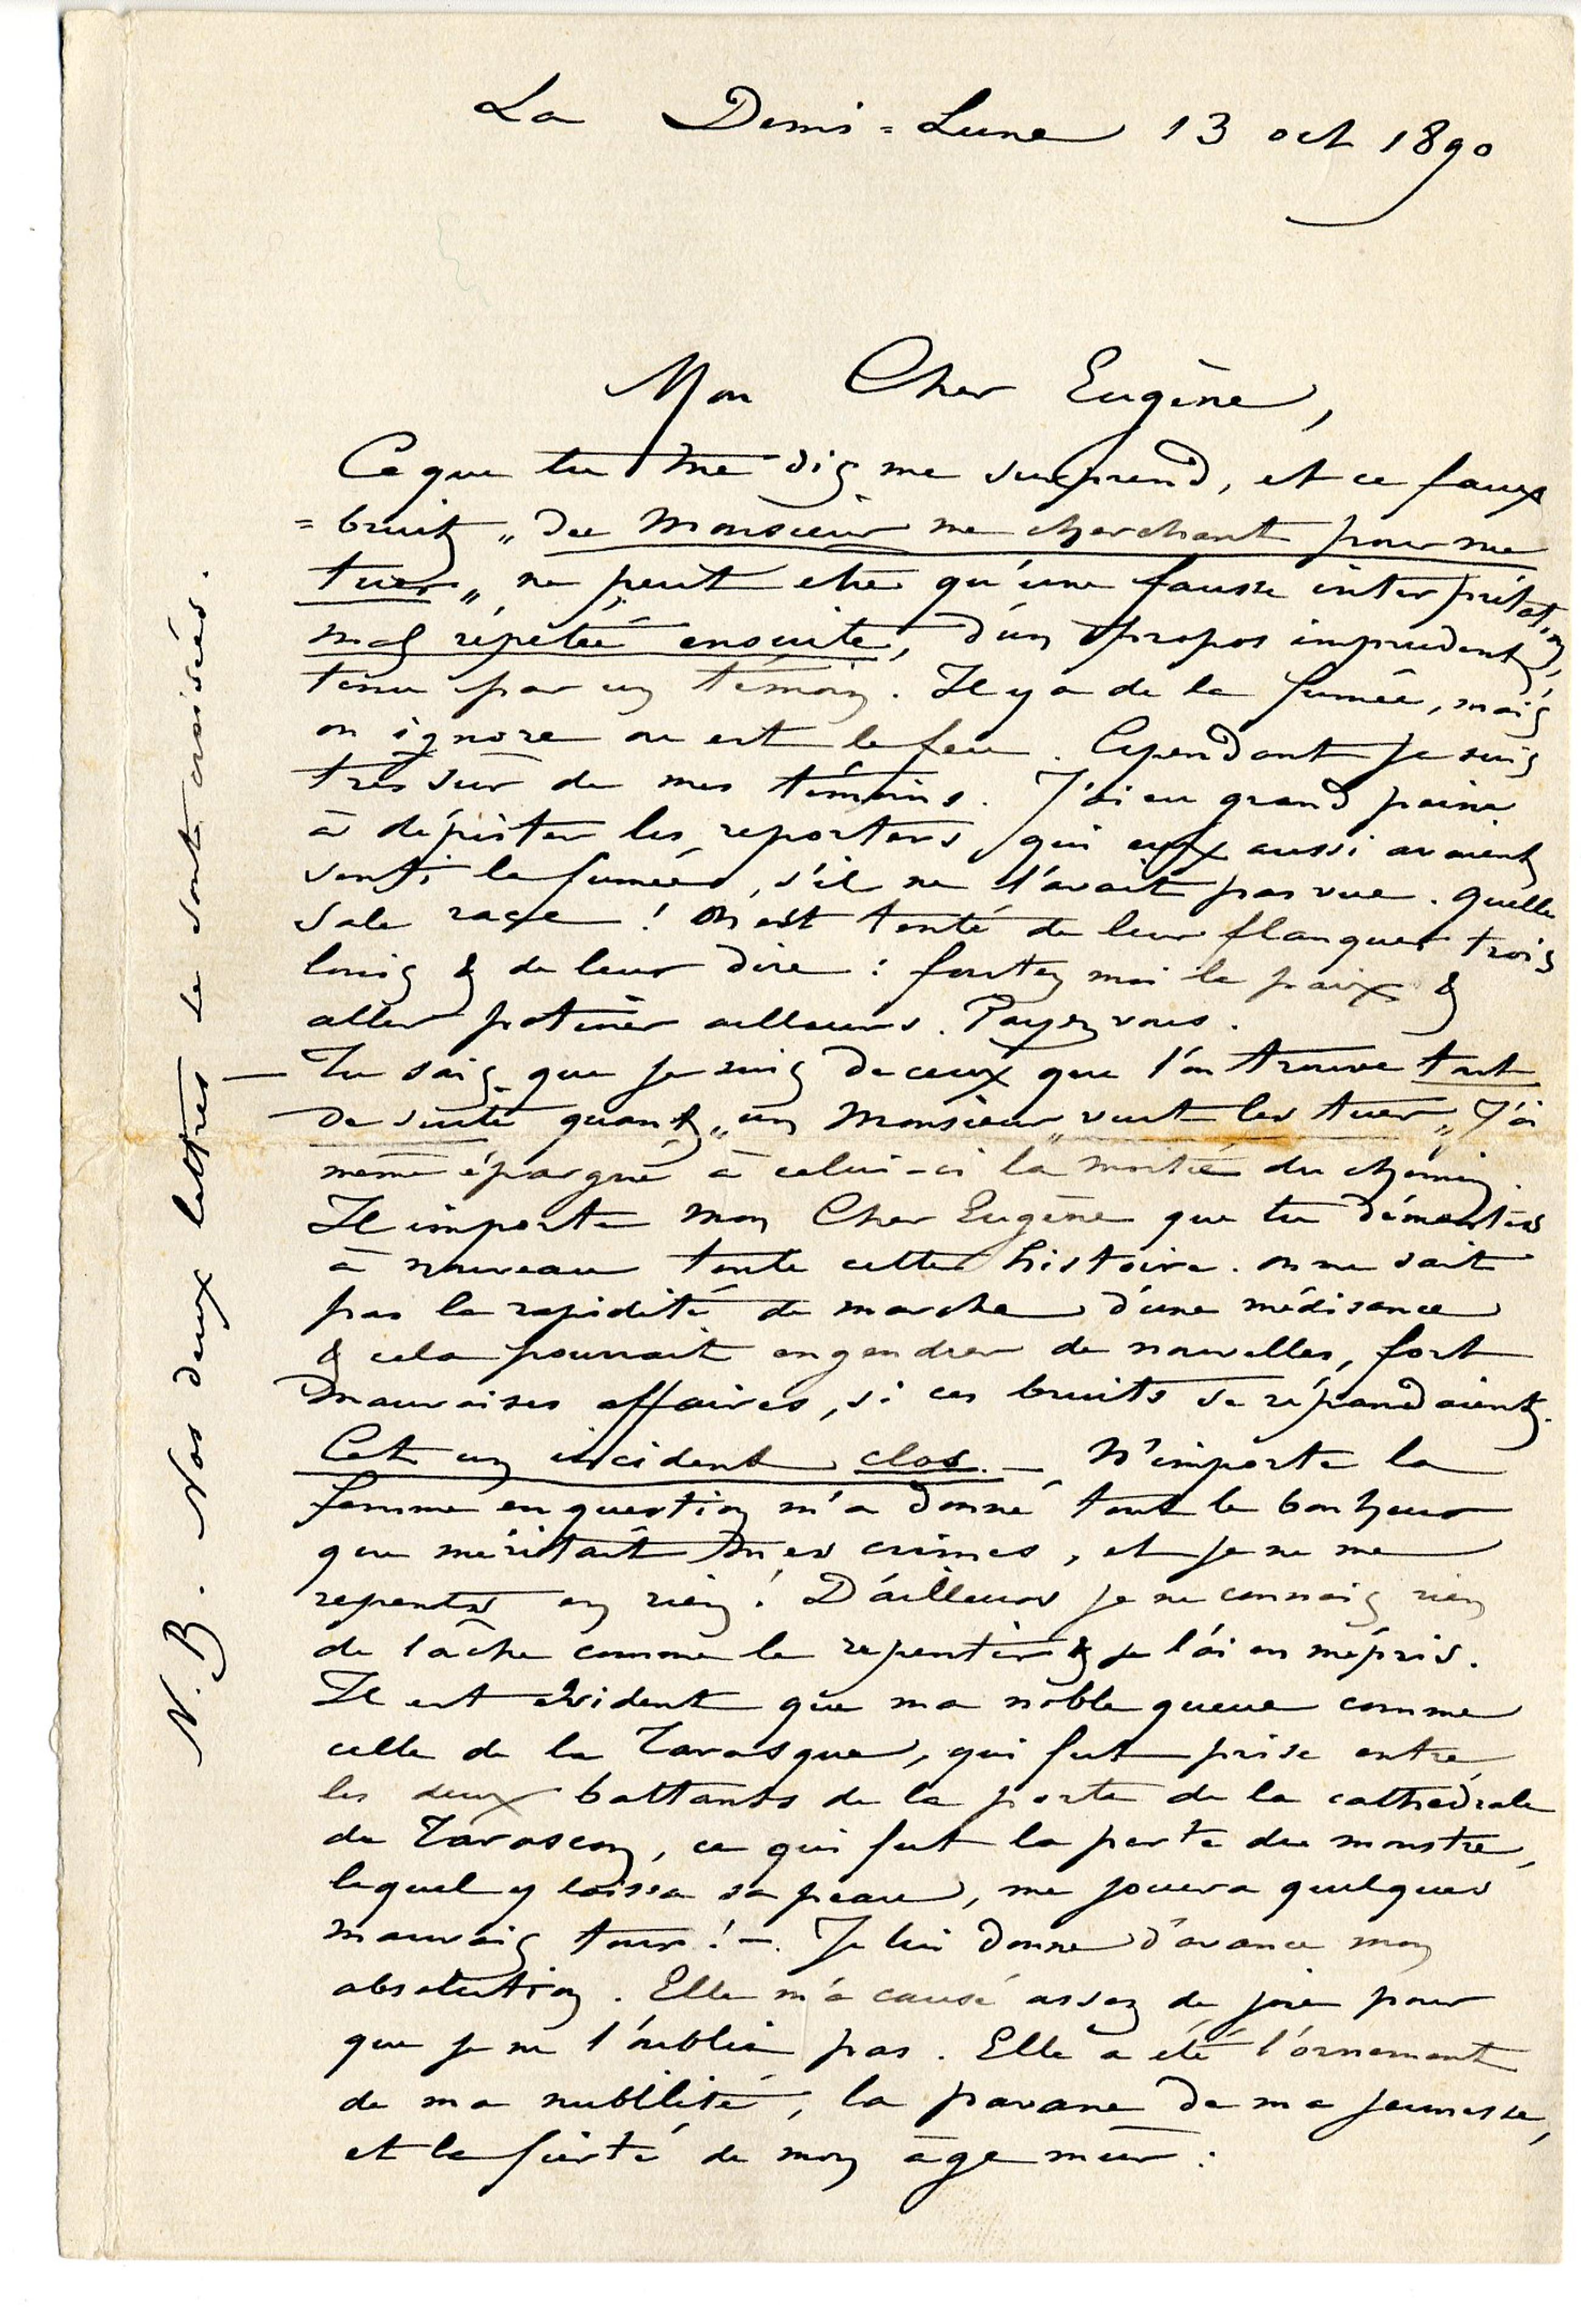 La Demi=Lune 13 oct 1890
Mon Cher Eugène,
Ce que tu me dis me surprend, et ce faux
=bruit „ du Monsieur me cherchant pour me
tuer „ ne peut etre qu'une fausse interprétation,
mal répétée ensuite, d'un propos imprudent,
tenu par un témoin. Il y a de la fumée, mais
on ignore ou est le feu. Cependant je suis
très sur de mes témoins. J'ai eu grand peine
à dépister les reporters qui eux aussi avaient
senti la fumée, s'il ne l'avait pas vue. Quelle
sale race ! On est tenté de leur flanquer trois
louis & de leur dire : foutez moi la paix &
aller potiner ailleurs. Payez vous.
— Tu sais que je suis de ceux que l'on trouve tout
de suite quand „ un Monsieur „ veut les tuer „ J'ai
même épargné à celui-ci la moitié du chemin.
Il importe mon Cher Eugène que tu démentes
à nouveau toute cette histoire. on ne sait
pas la rapidité de marche d'une médisance
& cela pourrait engendrer de nouvelles, fort
mauvaises affaires, si ces bruits se répandaient.
Cet un incident clos. — N'importe la
femme en question m'a donné tout le bonheur
que méritait mes crimes, et je ne me
repents en rien ! D'ailleurs je ne connais rien
de lâche comme le repentir & je l'ai en mépris.
Il est evident que ma noble queue comme
celle de la Tarasque, qui fut prise entre
les deux battants de la porte de la cathédrale
de Tarascon, ce qui fut la perte du monstre,
lequel y laissa sa peau, me jouera quelques
mauvais tour ! —. Je lui donne d'avance mon
absolution. Elle m'a causé assez de joie pour
que je ne l'oublie pas. Elle a été l'ornement
de ma nubilité, la pavane de ma jeunesse,
et la fierté de mon âge mur :
N.B. Nos deux lettres se sont croisées.